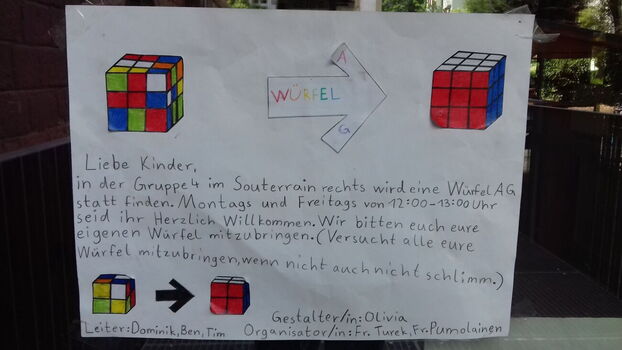 WÜRFEL
A
G
Liebe Kinder,
in der Gruppe 4 im Souterrain rechts wird eine Würfel AG
statt finden. Montags und Freitags von 12:00-13:00 Uhr
seid ihr Herzlich Willkommen. Wir bitten euch eure
eigenen Würfel mitzubringen. (Versucht alle eure
Würfel mitzubringen, wenn nicht auch nicht schlimm.)
Gestalter/in: Olivia
Leiter: Dominik, Ben, Tim
Organisator/in: Fr. Turek, Fr. Pumolainen